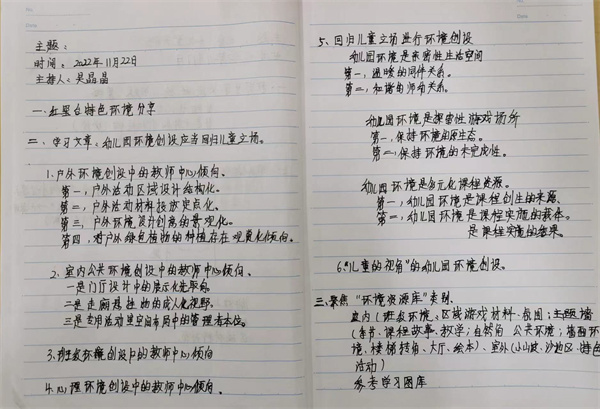 主题:
时间: 2022年11月22日
主持人: 吴晶晶
一、红里台特色环境分享
二、学习文章:幼儿园环境创设应当回归儿童立场。
1、户外环境创设中的教师中心倾向。
第一,户外活动区域设计结构化。
第二,户外活动材料投放定点化。
第三,户外环境设计创高的景观化。
第四,对户外绿色植物的种植存在观赏化倾向。
2、室内公共环境创设中的教师中心倾向。
一是门厅设计中的展示化取向。
二是走廊悬挂物的成人化视野。
三是专用活动室空间布局中的管理者本位。
3、班级环境创设中的教师中心倾向
4、心理环境创设中的教师中心倾向。
5、回归儿童立场进行环境创设
幼儿园环境是亲密性生活空间
第一,温暖的同伴关系。
第二,和谐的师幼关系。
幼儿园环境是探索性游戏场所
第一,保持环境的原生态。
第二,保持环境的未完成性。
幼儿园环境是多元化课程资源。
第一,幼儿园环境是课程创生的来源。
第二,幼儿园环境是课程实施的载体。
是课程实施的结果。
6."儿童的视角"的幼儿园环境创设。
三、聚焦"环境资源库"类别.
室内(班级环境、区域游戏材料、氛围;主题墙
(季节、课程故事、教学;自然角 公共环境;墙面环
境、楼梯转角、大厅、绘本)、室外(小山坡、沙池区、特色
活动)
参考学习图库